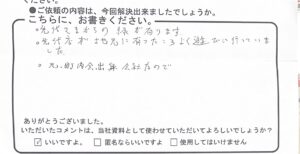 ださい。
●ご依頼の内容は、今回解決出来ましたでしょうか。
こちらに、お書きください。
・先代さまからの 縁が有ります
・先代 が 地元に 有った ころ よく 遊 びに 行っていま
した
ありがとうございました。
いただいたコメントは、当社資料として使わせていただいてよろしいでしょうか？
☑ いいですよ。 □ 匿名ならいいですよ □ 使用してはいけません